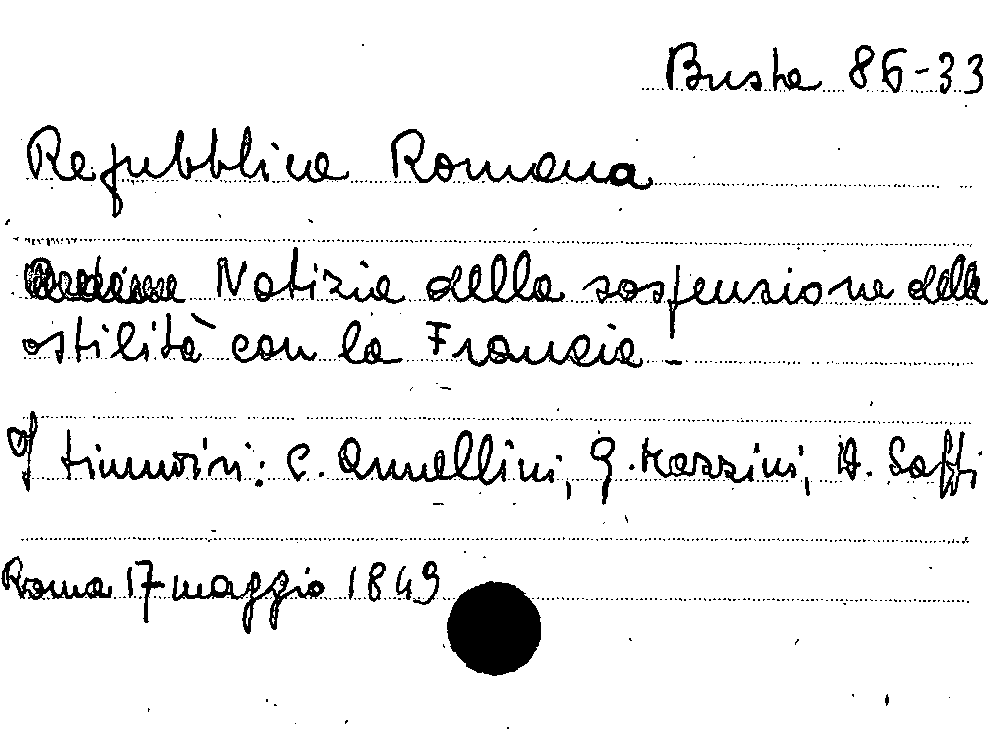 Busta 86-33
Repubblica Romana
Notizia della sospensione delle
ostilità con la Francia -
I triumviri: C. Armellini, G. Mazzini, A. Saffi
Roma 17 maggio 1849